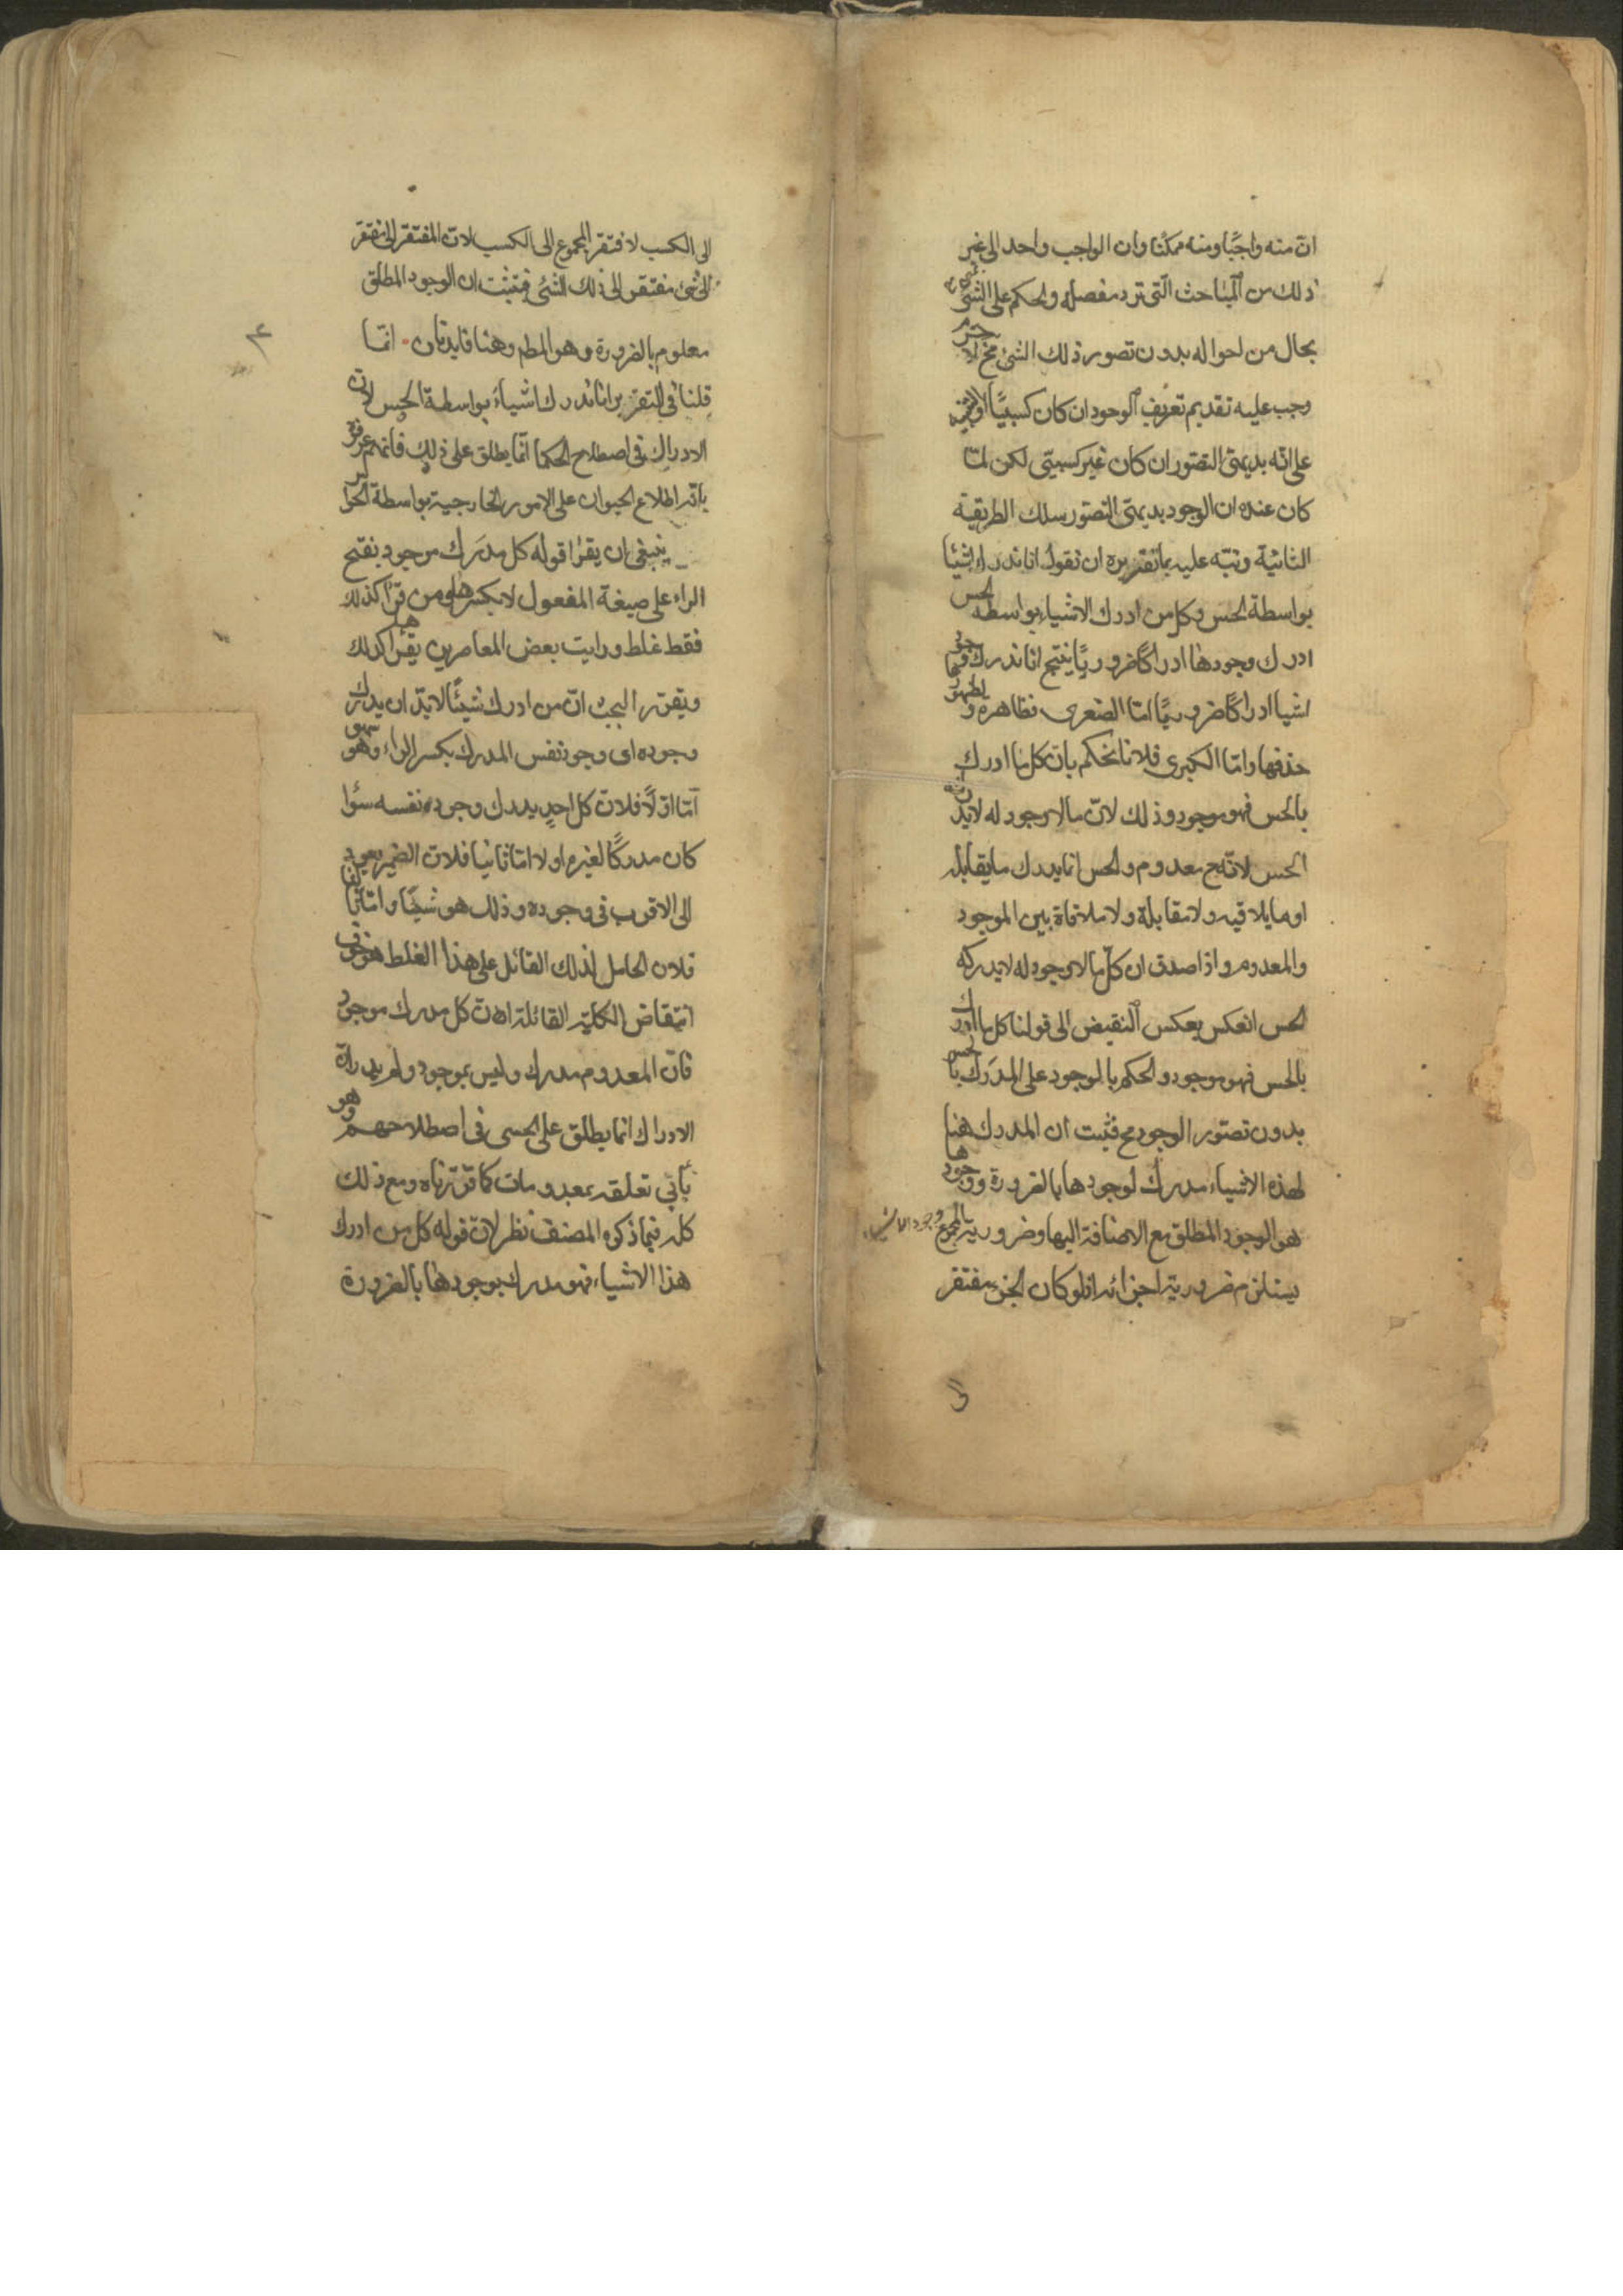 انّ منه واجبًا ومنه ممكنا وان الواجب واحد الى غير
ذلك من المباحث الّتى ترد مفصلة والحكم على الشئ
بحال من احواله بدون تصور ذلك الشئ مح لا جرم
وجب عليه تقديم تعريف الوجود ان كان كسبيًا او التنبيه
على انّه بديهىّ التصّور ان كان غير كسبيّ لكن لمّا
كان عنده ان الوجود بديهىّ التصّور سلك الطريقة
الثانية ونبّه عليه بما تقريره ان نقول انا ندرك اشيٰا
بواسطة الحس وكل من ادرك الاشياء بواسطة الحس
ادرك وجودها ادراكًا ضروريًا ينتج انا ندرك وجود
اشيا ادراكًا ضروريًا امّا الصغرى فظاهرة و لظهورها
حذفها وامّا الكبرى فلانا نحكم بانّ كل ما ادرك
بالحس فهو موجود وذلك لانّ ما لا وجود له لا يدركه
الحس لانّه ح معدوم والحس انما يدرك ما يقابله
او ما يلاقيه ولا مقابلة ولا ملاقاة بين الموجود
والمعدوم واذا صدق ان كلّ ما لا وجود له لا يدركه
الحس انعكس بعكس النقيض الى قولنا كل ما ادرك
بالحس فهو موجود والحكم بالموجود على المدرَك بالحس
بدون تصّور الوجود مح فثبت ان المدرك هنا
لهذه الاشياء مدرك لوجودها بالضرورة ووجودها
هو الوجود المطلق مع الاضافة اليها وضرورية المجموع وجود الاشياء
يستلزم ضرورية اجزائه اذ لو كان الجزء مفتقر
الى
الى الكسب لافتقر المجموع الى الكسب لانّ المفتقر الى المفتقر
الى شئ مفتقر الى ذلك الشئ فتثبت ان الوجود المطلق
معلوم بالضرورة وهو المطم وهنا فايدتان انّما
قلنا فى التقرير انا ندرك اشياءً بواسطة الحس لانّ
الادراك فى اصطلاح الحكما انّما يطلق على ذلك فانهم عرفوه
بانّه اطلاع الحيوان على الامور الخارجية بواسطة الحواس
ينبغى ان يقرٰا قوله كل مدرَك موجود بفتح
الراء على صيغة المفعول لا بكسرها ومن قرٰا كذلك
فقط غلط ورايت بعض المعاصرين يقرٰا كذلك
ويقرر البحث انّ من ادرك شيئًا لا بدّ ان يدرك
وجوده اى وجود نفس المدرك بكسر الراء وهو سهو
امّا اوّلًا فلانّ كل احدٍ يدرك وجود نفسه سؤا
كان مدركًا لغيره او لا امّا ثانيا فلانّ الضمير يعود
الى الاقرب فى وجوده وذلك هو شيئًا وامّا ثالثا
فلان الحامل لذلك القائل على هذا الغلط هو خوف
انتقاض الكلية القائلة ان كل مدرك موجود
فانّ المعدوم مدرك وليس بموجود ولم يدر انّ
الادراك انما يطلق على الحسى فى اصطلاحهم وهو
يأبى تعلقه بمعدومات كما قرّرناه ومع ذلك
كله فيما ذكره المصنف نظر لانّ قوله كل من ادرك
هذا الاشياء فهو مدرك بوجودها بالضرورة